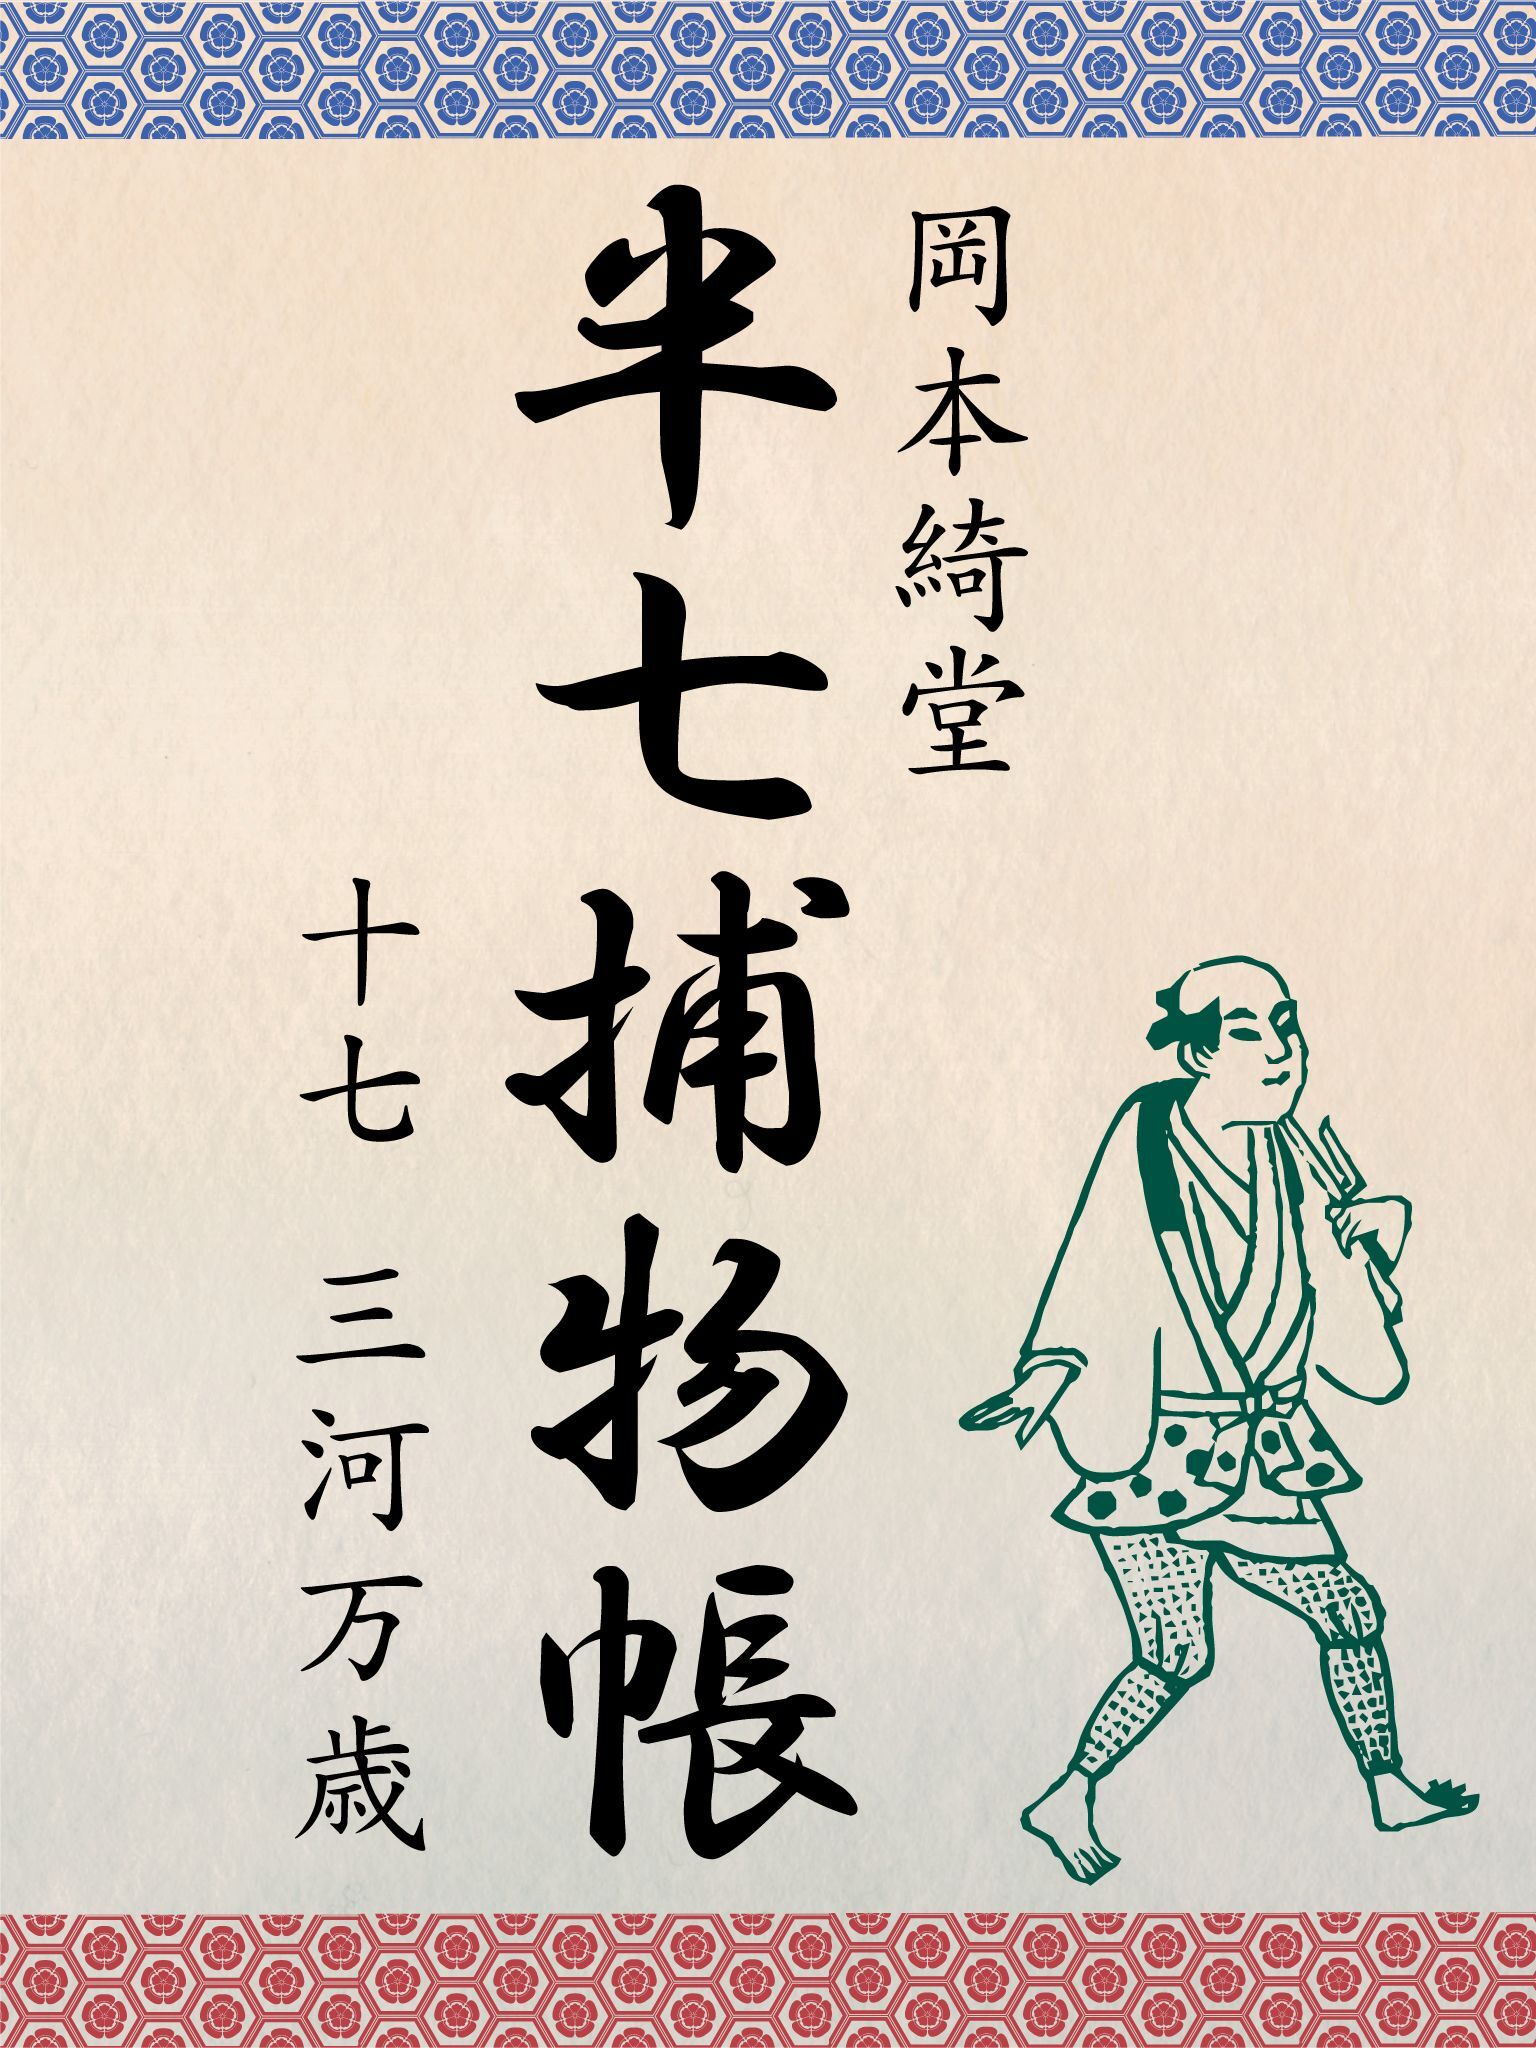 岡本綺堂
半七捕物帳
十七 三河万歳